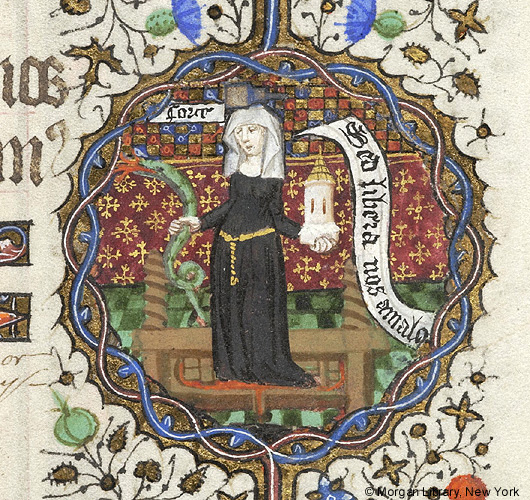 Sed libera nos amalo
© Morgan Library, New York